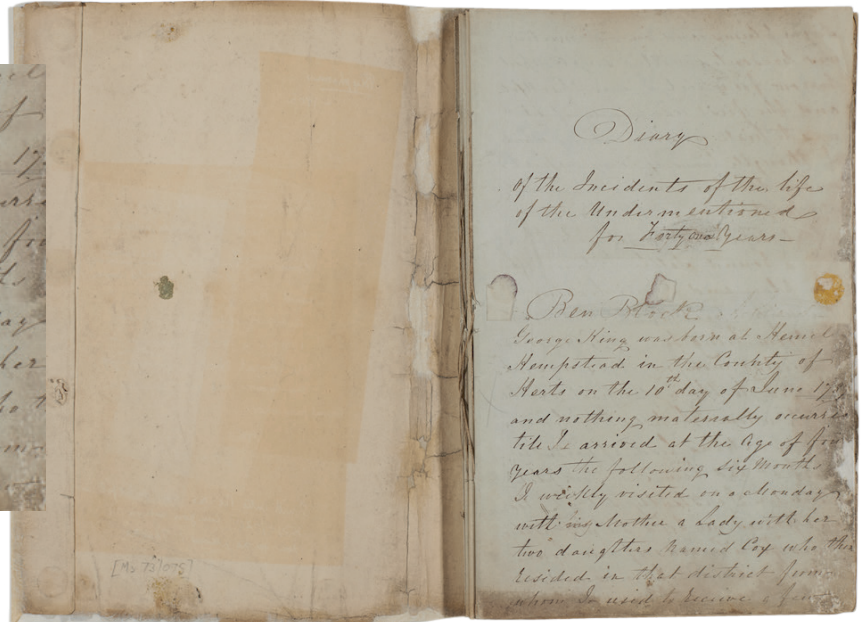 Diary
Of the Incidents of the life
of the Undermentioned
for Forty one Years—
Ben Block
George King was born at Hemel
Hempstead in the County of
Herts on the 10th day of June 17
and nothing materially occurred
till I arrived at the Age of four
Years the following six Months
I weekly visited on a Monday
with my Mother a Lady with her
two daughters Named Cox who then
resided in that district from
whom I used to receive a few
[MS 73/075]